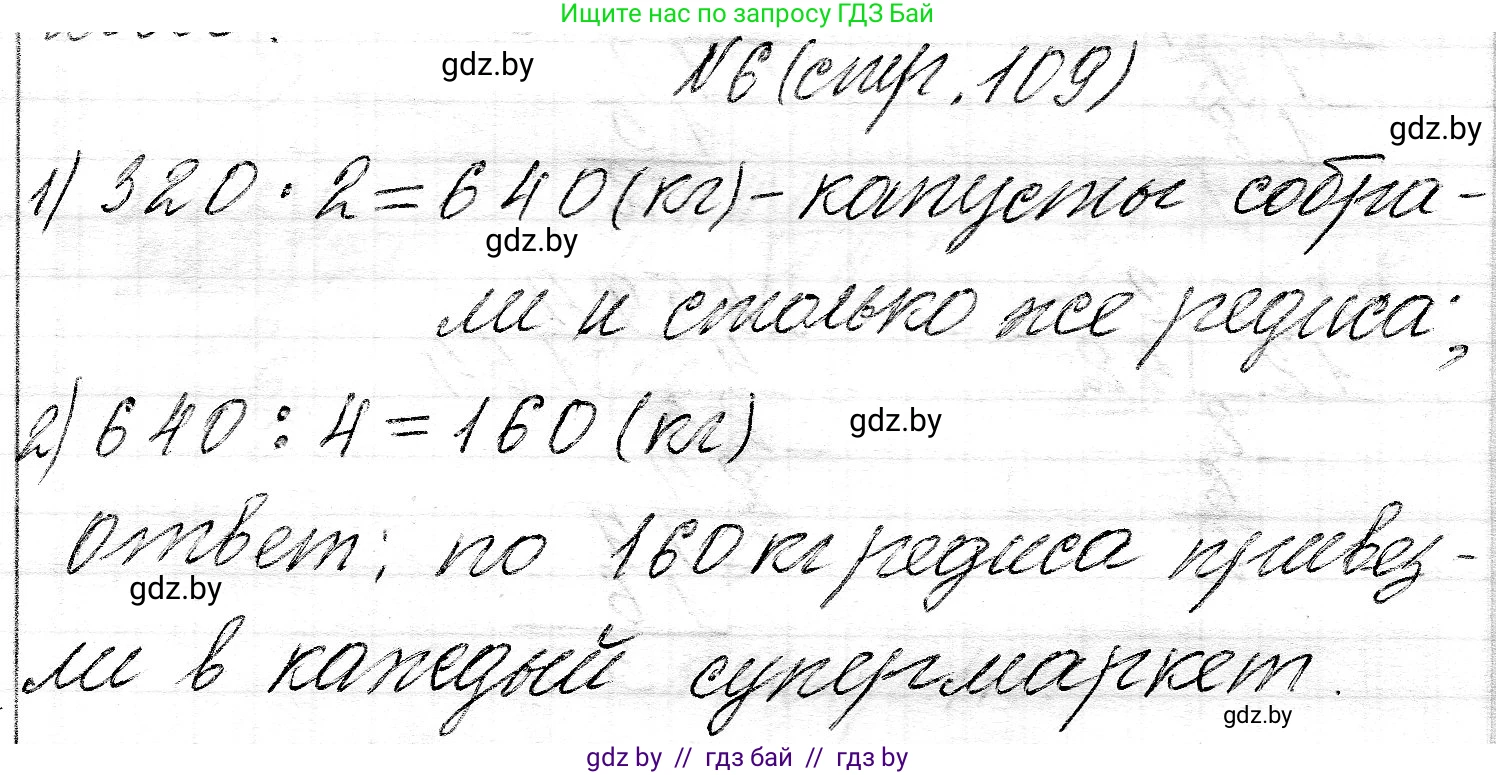 Ищите нас по запросу ГДЗ Бай
gdz.by
№6 (стр. 109)
gdz.by
1) 320 · 2 = 640 (кг) - капусты собра-
gdz.by
ли и столько же редиса;
2) 640 : 4 = 160 (кг)
gdz.by
ответ: по 160 кг редиса привез-
gdz.by
ли в каждый супермаркет.
gdz.by
gdz by // гдз бай // гдз by